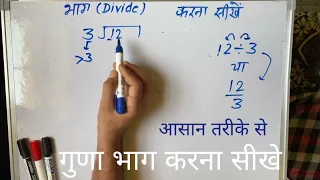 भाग (Divide) करना सीखें
3 ⟌12
>3
12÷3
या
12
3
आसान तरीके से
गुणा भाग करना सीखे